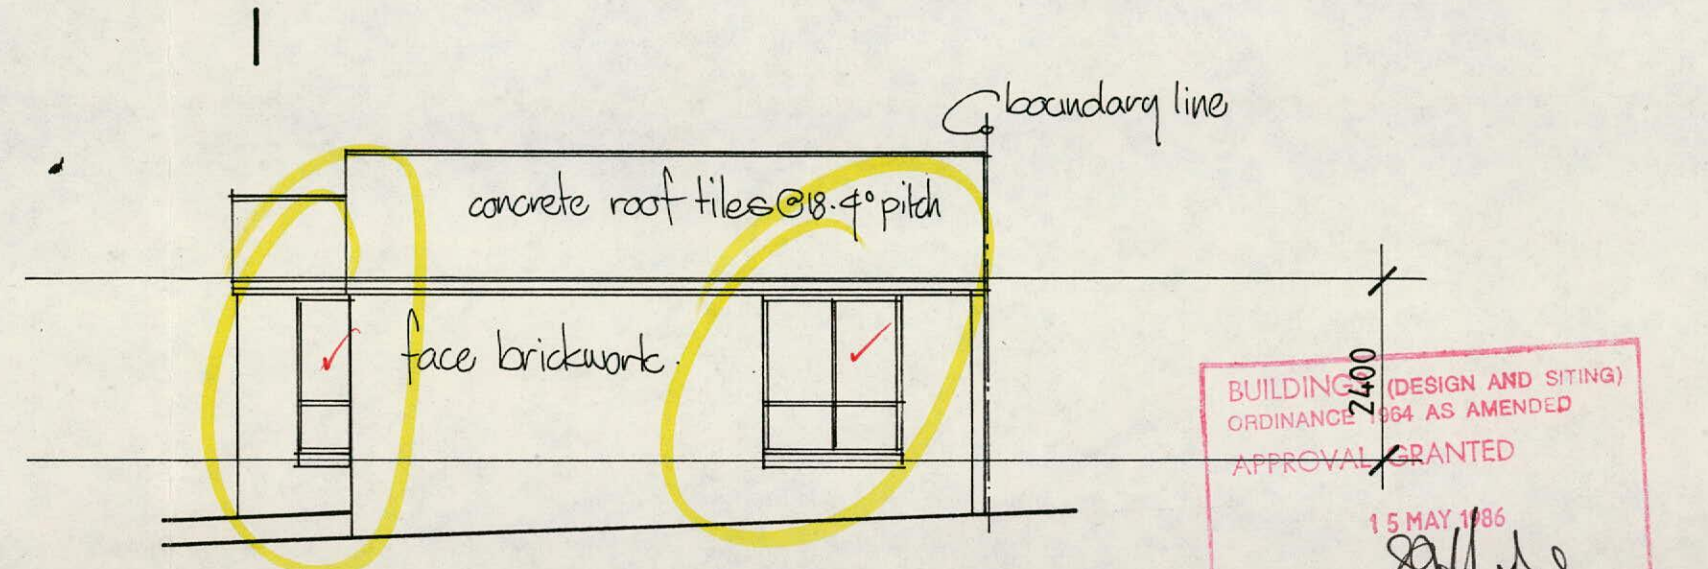 boundary line
concrete roof tiles @ 18.4° pitch
face brickwork.
2400
BUILDINGS (DESIGN AND SITING)
ORDINANCE 1964 AS AMENDED
APPROVAL GRANTED
15 MAY 1986